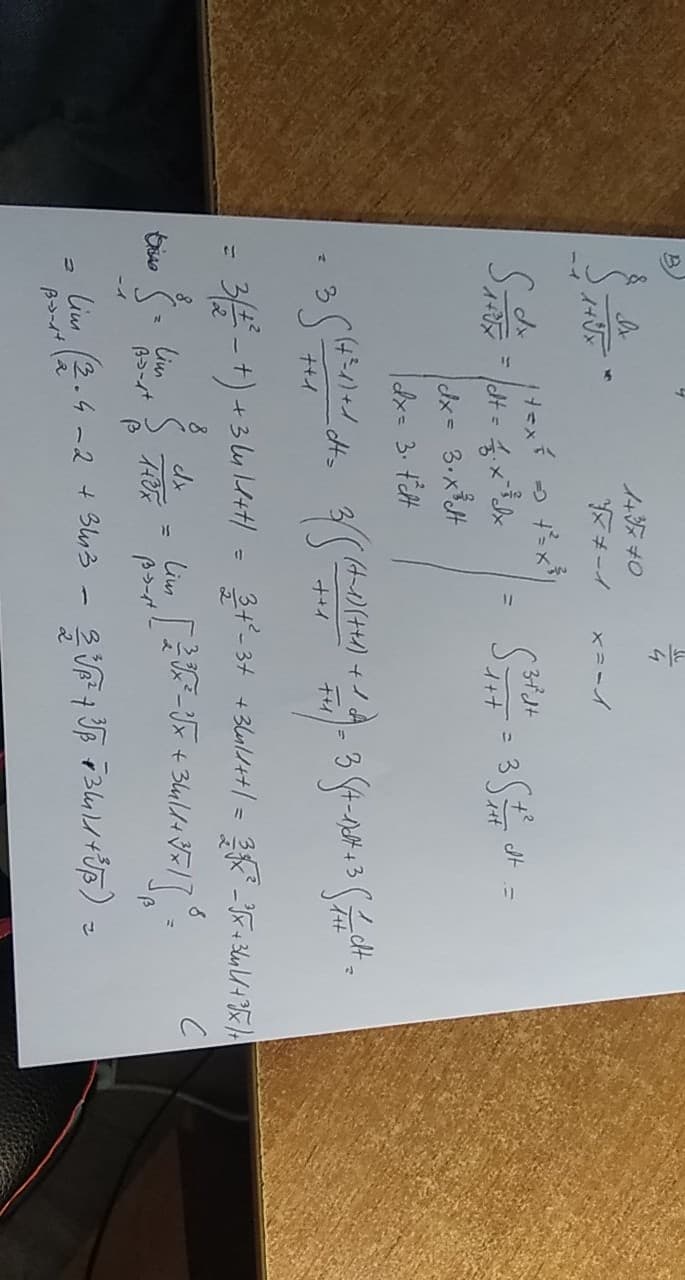 B) 4 π/4
∫_{-1}^{8} dx/(1+∛x) 1+∛x ≠ 0
∛x ≠ -1 x = -1
∫ dx/(1+∛x) = | t = x^{1/3} ⇒ t² = x^{2/3} | = ∫ 3t²dt/(1+t) = 3∫ t²/(1+t) dt =
dt = 1/3 · x^{-2/3} dx
dx = 3 · x^{2/3} dt
dx = 3 · t² dt
= 3∫ ((t²-1)+1)/(t+1) dt = 3(∫ (t-1)(t+1)/(t+1) + 1/(t+1) dt) = 3∫(t-1)dt + 3∫ 1/(1+t) dt =
= 3(t²/2 - t) + 3ln|1+t| = 3/2 t² - 3t + 3ln|1+t| = 3/2 ∛x² - ∛x + 3ln|1+∛x| +
C
∫_{-1}^{8} = lim_{β→-1⁺} ∫_{β}^{8} dx/(1+∛x) = lim_{β→-1⁺} [3/2 ∛x² - ∛x + 3ln|1+∛x|]_{β}^{8} =
= lim_{β→-1⁺} (3/2 · 4 - 2 + 3ln3 - 3/2 ∛β² + ∛β - 3ln|1+∛β|) =